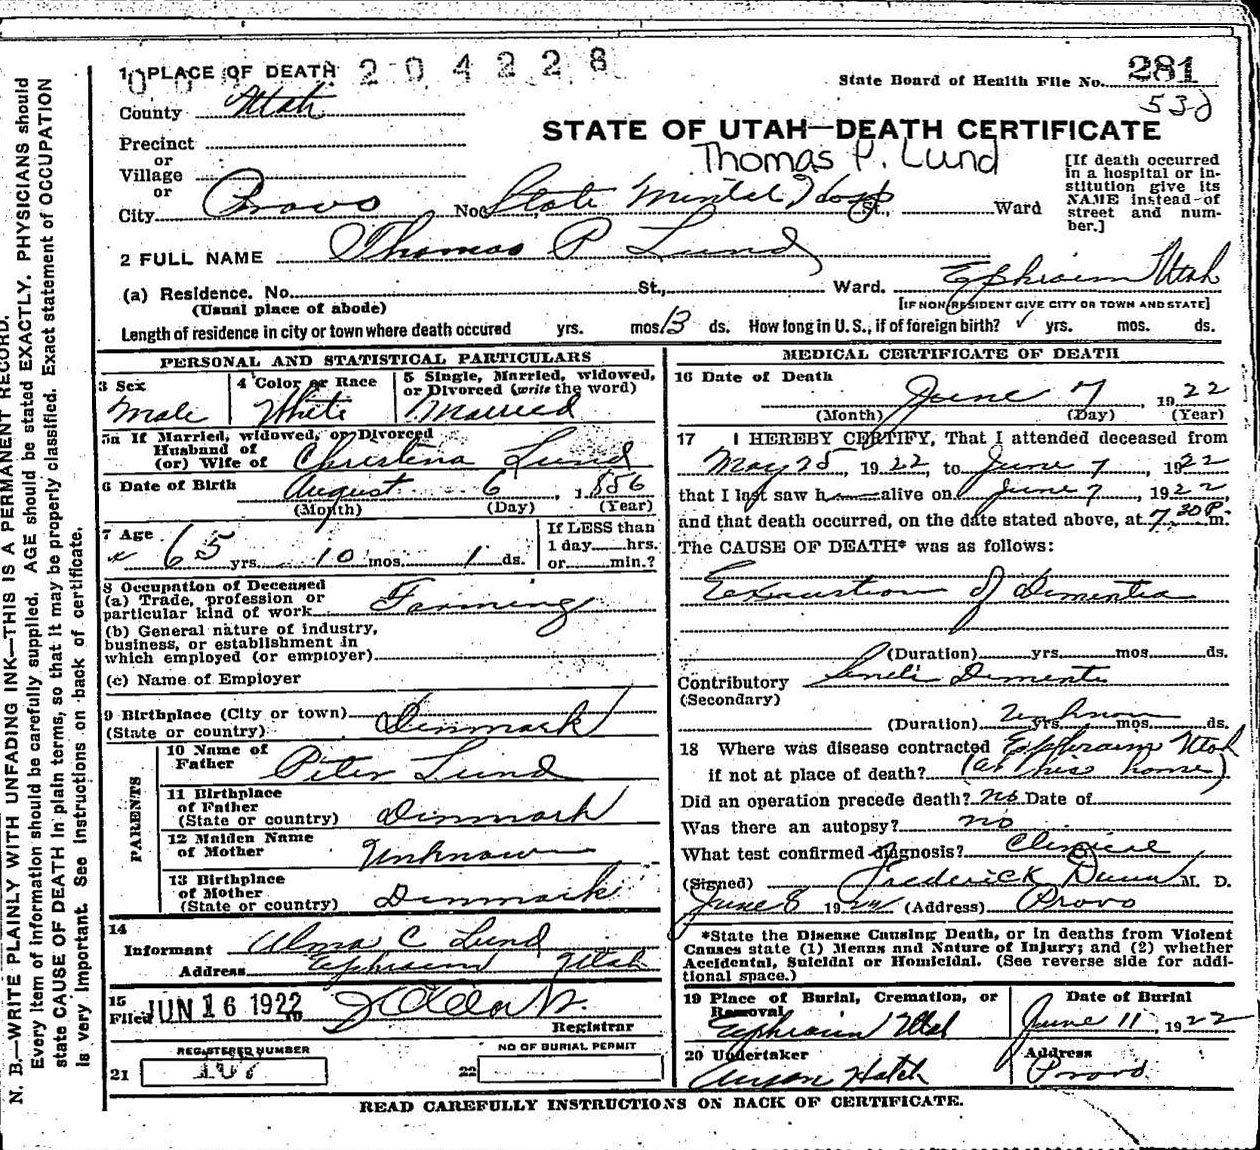 0 204228
1 PLACE OF DEATH
State Board of Health File No. 281
532
County Utah
STATE OF UTAH—DEATH CERTIFICATE
Thomas P. Lund
Precinct
or
Village
or
City Provo No. State Mental Hosp St., Ward
[If death occurred
in a hospital or in-
stitution give its
NAME instead of
street and num-
ber.]
2 FULL NAME Thomas P Lund
(a) Residence. No. St., Ward. Ephraim Utah
(Usual place of abode)
[IF NON-RESIDENT GIVE CITY OR TOWN AND STATE]
Length of residence in city or town where death occured yrs. mos. 13 ds. How long in U.S., if of foreign birth? ✓ yrs. mos. ds.
PERSONAL AND STATISTICAL PARTICULARS
3 Sex
Male
4 Color or Race
White
5 Single, Married, widowed,
or Divorced (write the word)
Married
5a If Married, widowed, or Divorced
Husband of
(or) Wife of Christina Lund
6 Date of Birth August 6, 1856
(Month) (Day) (Year)
7 Age
65 yrs. 10 mos. 1 ds.
If LESS than
1 day hrs.
or min.?
8 Occupation of Deceased
(a) Trade, profession or
particular kind of work Farming
(b) General nature of industry,
business, or establishment in
which employed (or employer)
(c) Name of Employer
9 Birthplace (City or town)
(State or country) Dinmark
PARENTS
10 Name of
Father Peter Lund
11 Birthplace
of Father
(State or country) Dinmark
12 Maiden Name
of Mother Unknown
13 Birthplace
of Mother
(State or country) Dinmark
14
Informant Alma C Lund
Address Ephraim Utah
15
Filed JUN 16 1922
Registrar
REGISTERED NUMBER
21 107
NO OF BURIAL PERMIT
22
MEDICAL CERTIFICATE OF DEATH
16 Date of Death
June 7, 1922
(Month) (Day) (Year)
17 I HEREBY CERTIFY, That I attended deceased from
May 25, 1922, to June 7, 1922
that I last saw h alive on June 7, 1922,
and that death occurred, on the date stated above, at 7 30 P. m.
The CAUSE OF DEATH* was as follows:
Exhaustion of Dementia
(Duration) yrs. mos. ds.
Contributory Senile Dementi
(Secondary)
(Duration) Unknown yrs. mos. ds.
18 Where was disease contracted Ephraim Utah
if not at place of death? (at his home)
Did an operation precede death? no Date of
Was there an autopsy? no
What test confirmed diagnosis? Clinical
(Signed) Frederick Dunn M. D.
June 8 1922 (Address) Provo
*State the Disease Causing Death, or in deaths from Violent
Causes state (1) Menns and Nature of Injury; and (2) whether
Accidental, Suicidal or Homicidal. (See reverse side for addi-
tional space.)
19 Place of Burial, Cremation, or
Removal
Ephraim Utah
Date of Burial
June 11, 1922
20 Undertaker
Hatch
Address
Provo
READ CAREFULLY INSTRUCTIONS ON BACK OF CERTIFICATE.
N. B.—WRITE PLAINLY WITH UNFADING INK—THIS IS A PERMANENT RECORD.
Every item of information should be carefully supplied. AGE should be stated EXACTLY. PHYSICIANS should
state CAUSE OF DEATH in plain terms, so that it may be properly classified. Exact statement of OCCUPATION
is very important. See instructions on back of certificate.